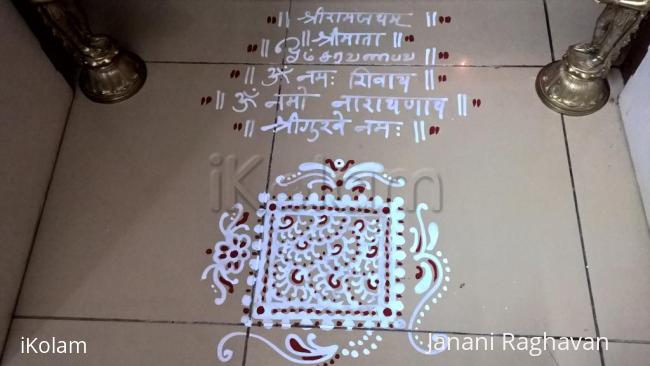 ॥ श्रीरामजयम् ॥
॥ श्रीमाता ॥
॥ ஓம் சரவணபவ ॥
॥ ॐ नमः शिवाय ॥
॥ ॐ नमो नारायणाय ॥
॥ श्रीगुरवे नमः ॥
iKolam
iKolam
Janani Raghavan